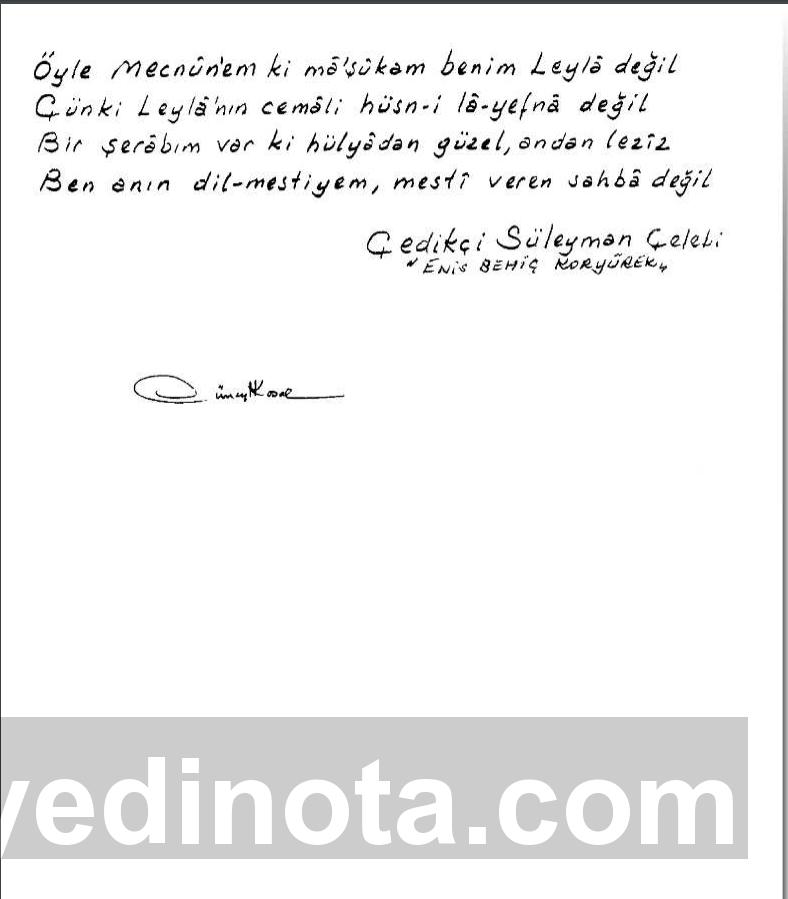 Öyle Mecnûn'em ki mâ'şûkam benim Leylâ değil
Çünki Leylâ'nın cemâli hüsn-i lâ-yefnâ değil
Bir şerâbım var ki hülyâdan güzel, andan lezîz
Ben anın dil-mestiyem, mestî veren sahbâ değil
Çedikçi Süleyman Çelebi
"ENİS BEHİÇ KORYÜREK"
yedinota.com